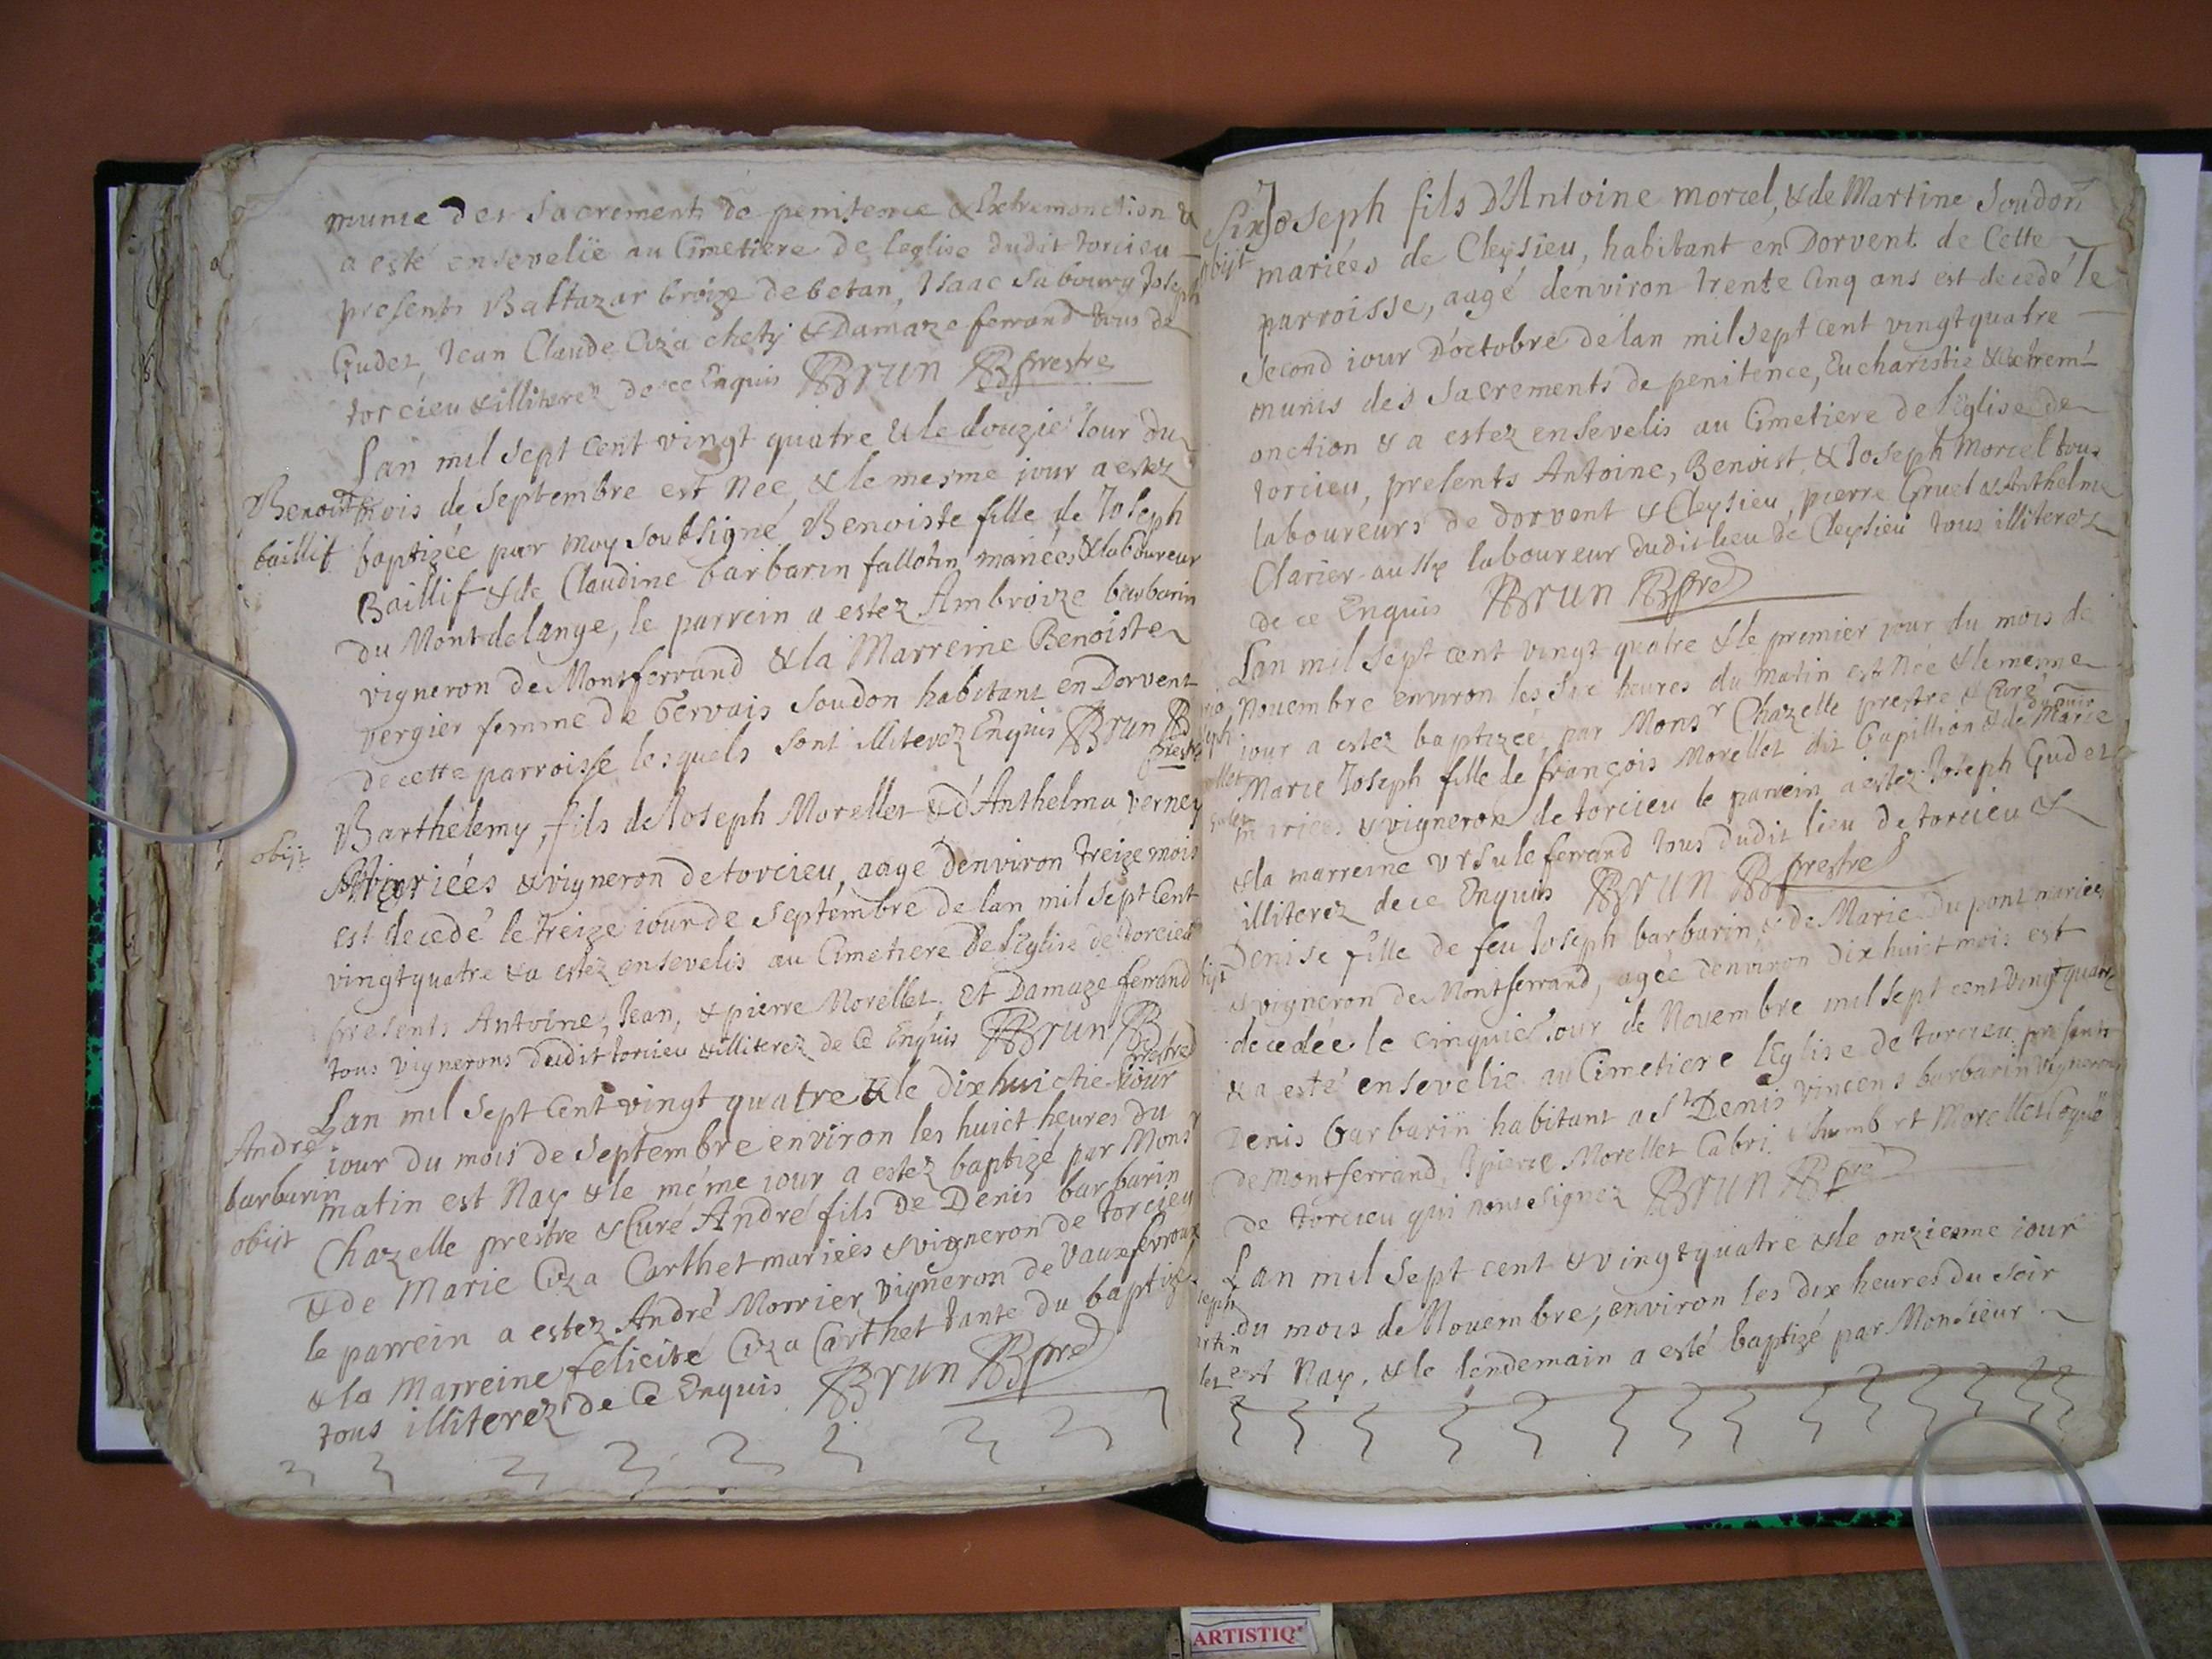 munie des Sacrements de penitence & Extremonction &
a esté ensevelie au Cimetiere de leglise dudit torcieu
presents Baltazar broize de betan, Isaac Saboury Joseph
Gudet, Jean Claude Ciza chety & Damaze ferrand tous de
torcieu & illiterez de ce Enquis Brun prestre
Lan mil sept cent vingt quatre & le douzie Jour du
Benoite mois de septembre est Née, & le mesme jour a estez
baillif baptizée par moy soubsigné Benoiste fille de Joseph
Baillif & de Claudine barbarin fallotin mariées & laboureur
du Montdelange, le parrein a estez Ambroize barbarin
vigneron de Montferrand & la Marreine Benoiste
vergier femme de Gervais Soudon habitant en Dorvent
de cette parroisse lesquels sont illiterez Enquis Brun
prestre
Barthelemy, fils de Joseph Morellet & d'Anthelma verney
obijt Mariées & vigneron de torcieu, aagé denviron treize mois
est decedé le treize iour de septembre de lan mil sept Cent
vingt quatre & a estez ensevelis au Cimetiere de l'Eglise de torcieu
presents Antoine, Jean, & pierre Morellet, Et Damaze ferrand
tous vignerons dudit torcieu & illiterez de Ce Enquis Brun
prestre
Lan mil sept Cent vingt quatre & le dixhuictie iour
André iour du mois de Septembre environ les huict heures du
barbarin matin est Nay & le méme iour a estez baptizé par Monsr
obijt Chazelle prestre & Curé André fils de Denis barbarin
& de Marie Ciza Carthet mariées & vigneron de torcieu
le parrein a estez André Morrier vigneron de Vauxfevroux
& la Marreine felicité Ciza Carthet tante du baptizé
tous illiterez de Ce Enquis Brun pre
Joseph fils D'Antoine morcel, & de Martine Soudon
obijt mariées de Cleysieu, habitant en Dorvent de Cette
parroisse, aagé denviron trente Cinq ans est decedé le
second iour D'octobre de lan mil sept cent vingt quatre
munis des Sacrements de penitence, Eucharistie & extrem
onction & a estez ensevelis au Cimetiere de l'Eglise de
torcieu, presents Antoine, Benoist, & Joseph Morcel tous
laboureurs de dorvent & Cleysieu, pierre Gruel & Anthelme
Clarier aussy laboureur dudit lieu de Cleysieu tous illiterez
de ce Enquis Brun pre
Lan mil sept cent vingt quatre & le premier iour du mois de
Nouembre environ les six heures du matin est Née & le mesme
iour a estez baptizée par Monsr Chazelle prestre & Curé
Marie Joseph fille de françois Morellet dit Gapillion & de Marie
mariées & vigneron de torcieu le parrein a estez Joseph Gudet
& la marreine Vrsule ferrand tous dudit lieu de torcieu &
illiterez de ce Enquis Brun prestre
Denise fille de feu Joseph barbarin & de Marie Dupont mariées
& vigneron de Montferrand, agée denviron Dix huict mois est
decedée le cinquie Jour de Novembre mil sept cent vingt quatre
& a esté ensevelie au Cimetiere lEglise de torcieu presents
Denis barbarin habitant a St Denis Vincens barbarin vigneron
de Montferrand, & pierre Morellet Cabri & humbert Morellet
de torcieu qui nont signez Brun pre
Lan mil sept cent & vingt quatre & le onziesme iour
du mois de Nouembre, environ les dix heures du soir
est Nay, & le lendemain a esté baptizé par Monsieur
ARTISTIQ